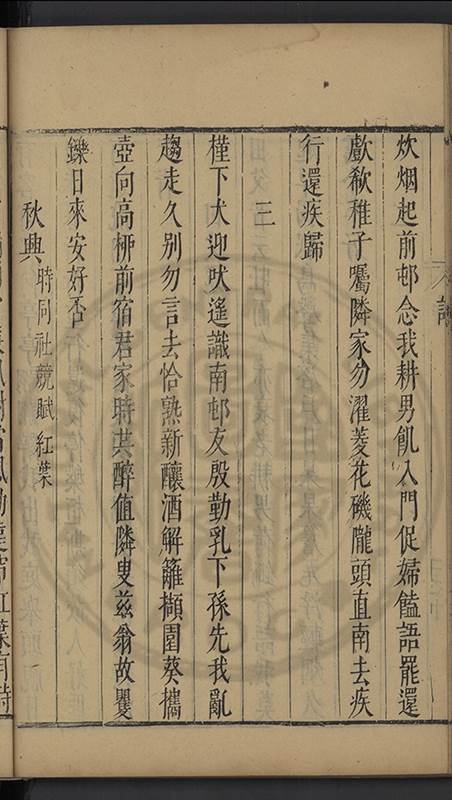 炊烟起前邨念我耕男飢入門促婦饁語罷還
歔欷稚子囑隣家勿濯菱花磯隴頭直南去疾
行還疾歸
三
槿下犬迎吠遙識南邨友殷勤乳下孫先我亂
趨走久別勿言去恰熟新釀酒解籬擷園葵攜
壺向高栁前宿君家時共醉值隣叟兹翁故矍
鑠日來安好否
秋興時同社競賦紅葉